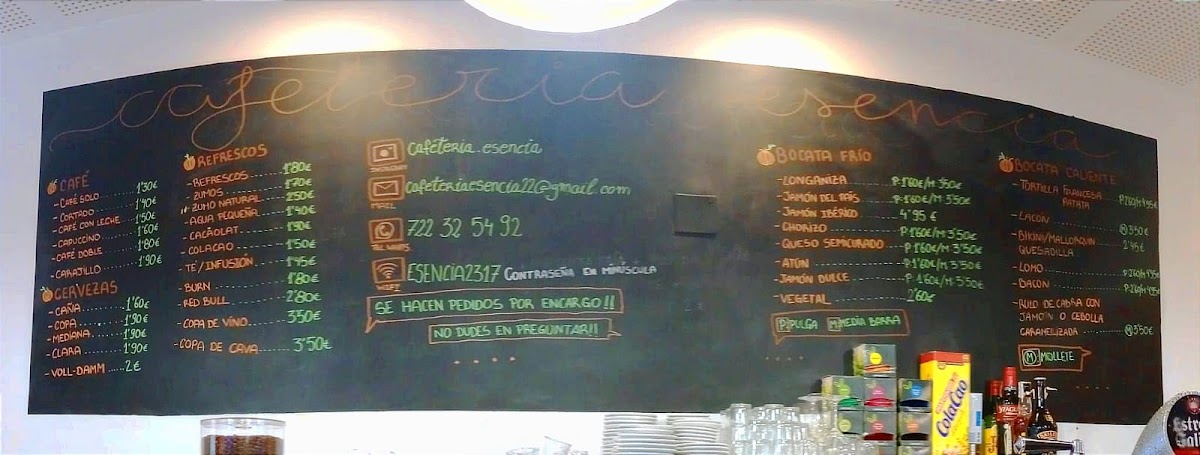 cafeteria esencia
CAFÉ
- CAFÉ SOLO ........ 1'30€
- CORTADO ........ 1'40€
- CAFÉ CON LECHE ..... 1'50€
- CAPUCCINO ........ 1'60€
- CAFÉ DOBLE ........ 1'80€
- CARAJILLO ........ 1'90€
CERVEZAS
- CAÑA ........ 1'60€
- COPA ........ 1'90€
- MEDIANA ........ 1'90€
- CLARA ........ 1'90€
- VOLL-DAMM ..... 2€
REFRESCOS
- REFRESCOS ........ 1'80€
- ZUMOS ........ 1'70€
- ZUMO NATURAL ..... 2'50€
- AGUA PEQUEÑA ..... 1'40€
- CACAOLAT ........ 1'90€
- COLACAO ........ 1'50€
- TÉ/INFUSIÓN ..... 1'45€
- BURN ........ 1'80€
- RED BULL ........ 2'80€
- COPA DE VINO ..... 3'50€
- COPA DE CAVA ..... 3'50€
INSTAGRAM cafeteria.esencia
MAIL cafeteriaesencia22@gmail.com
722 32 54 92
WIFI ESENCIA2317 CONTRASEÑA EN MINÚSCULA
SE HACEN PEDIDOS POR ENCARGO!!
NO DUDES EN PREGUNTAR!!
BOCATA FRÍO
- LONGANIZA ........ P:1'60€/M:3'50€
- JAMÓN DEL PAÍS ..... P:1'60€/M:3'50€
- JAMÓN IBÉRICO ..... 4'95€
- CHORIZO ........ P:1'60€/M:3'50€
- QUESO SEMICURADO ... P:1'60€/M:3'50€
- ATÚN ........ P:1'60€/M:3'50€
- JAMÓN DULCE ..... P:1'60€/M:3'50€
- VEGETAL ........ 2'60€
P:PULGA M:MEDIA BARRA
BOCATA CALIENTE
- TORTILLA FRANCESA
PATATA
- LACÓN ........ (M) 3'50€
- BIKINI/MALLORQUIN 2'45€
QUESADILLA
- LOMO
- BACON
- RULO DE CABRA CON
JAMÓN O CEBOLLA
CARAMELIZADA ..... (M) 3'50€
(M) MOLLETE
ColaCao
Estrella
Gali